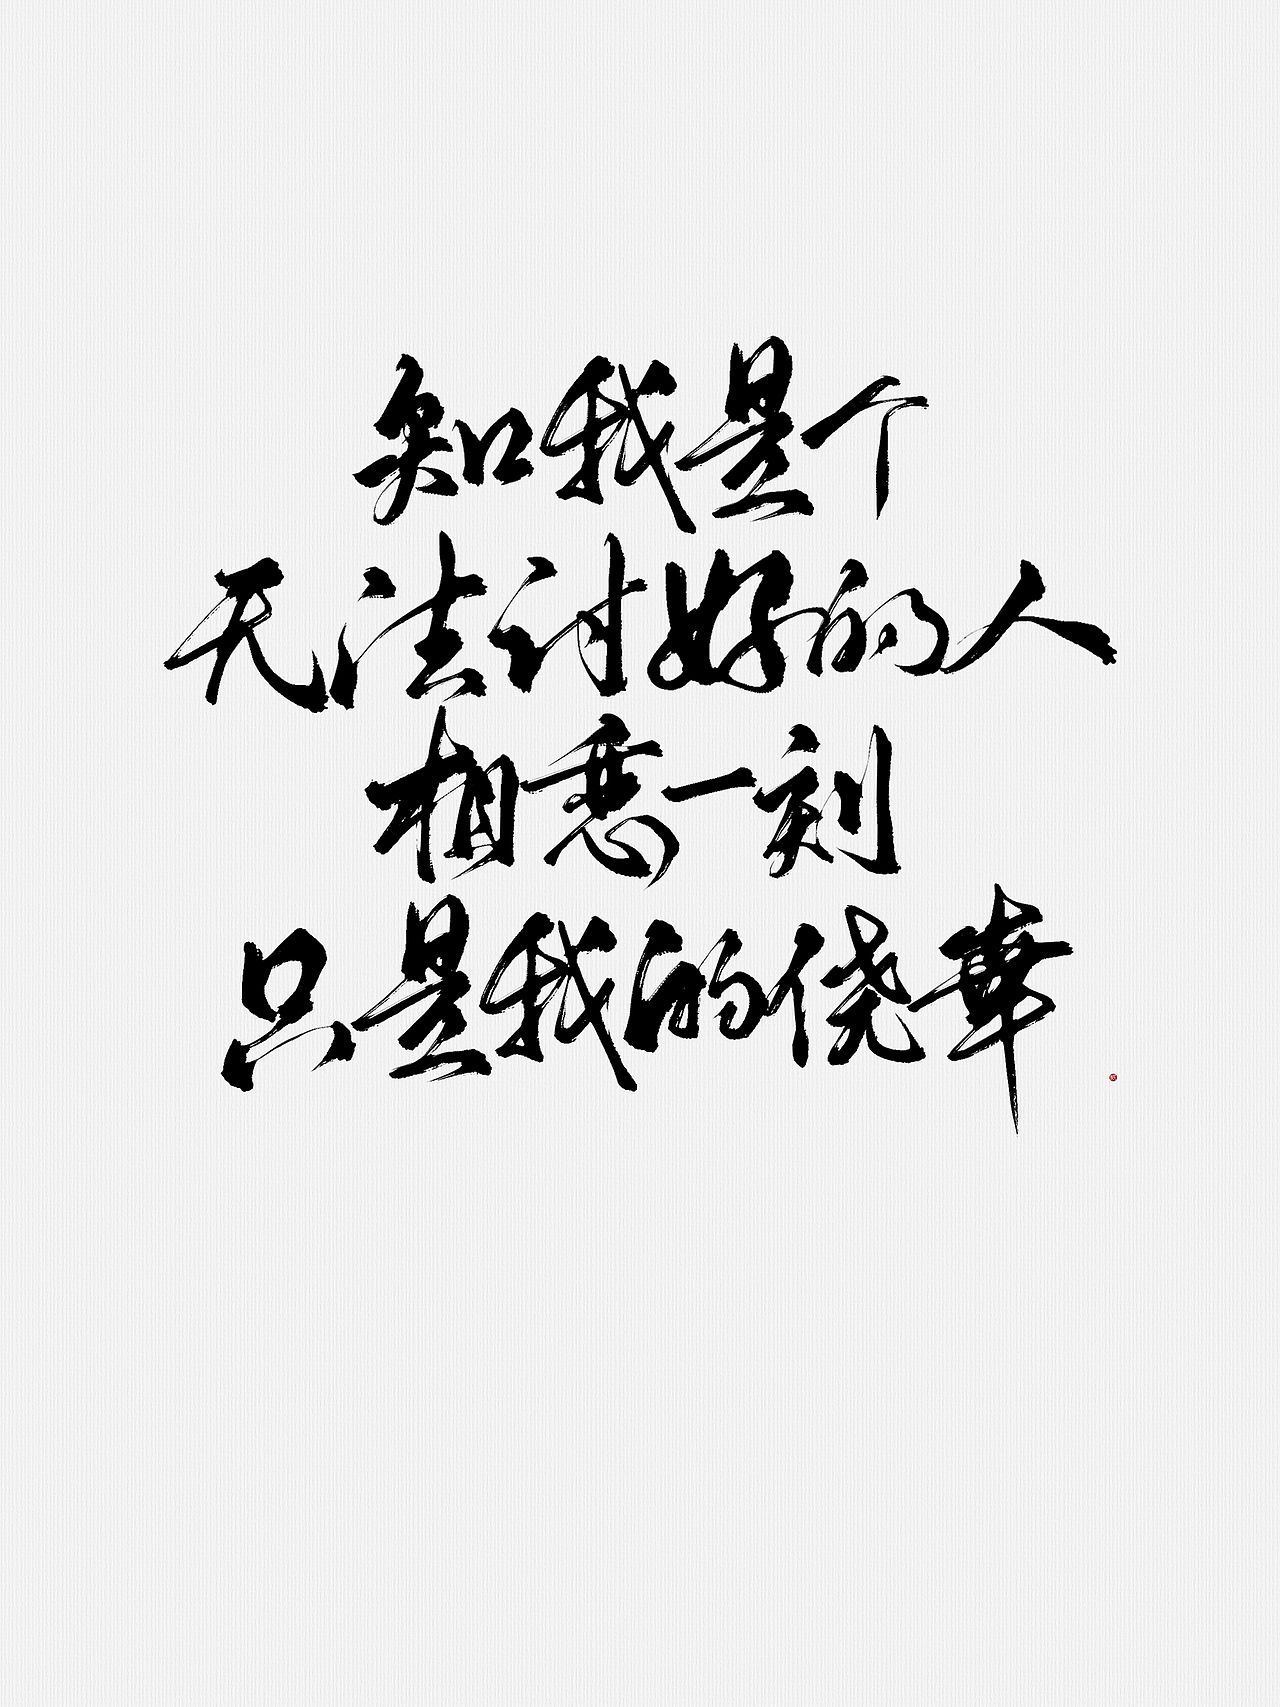 知我是个
无法讨好的人
相恋一刻
只是我的侥幸